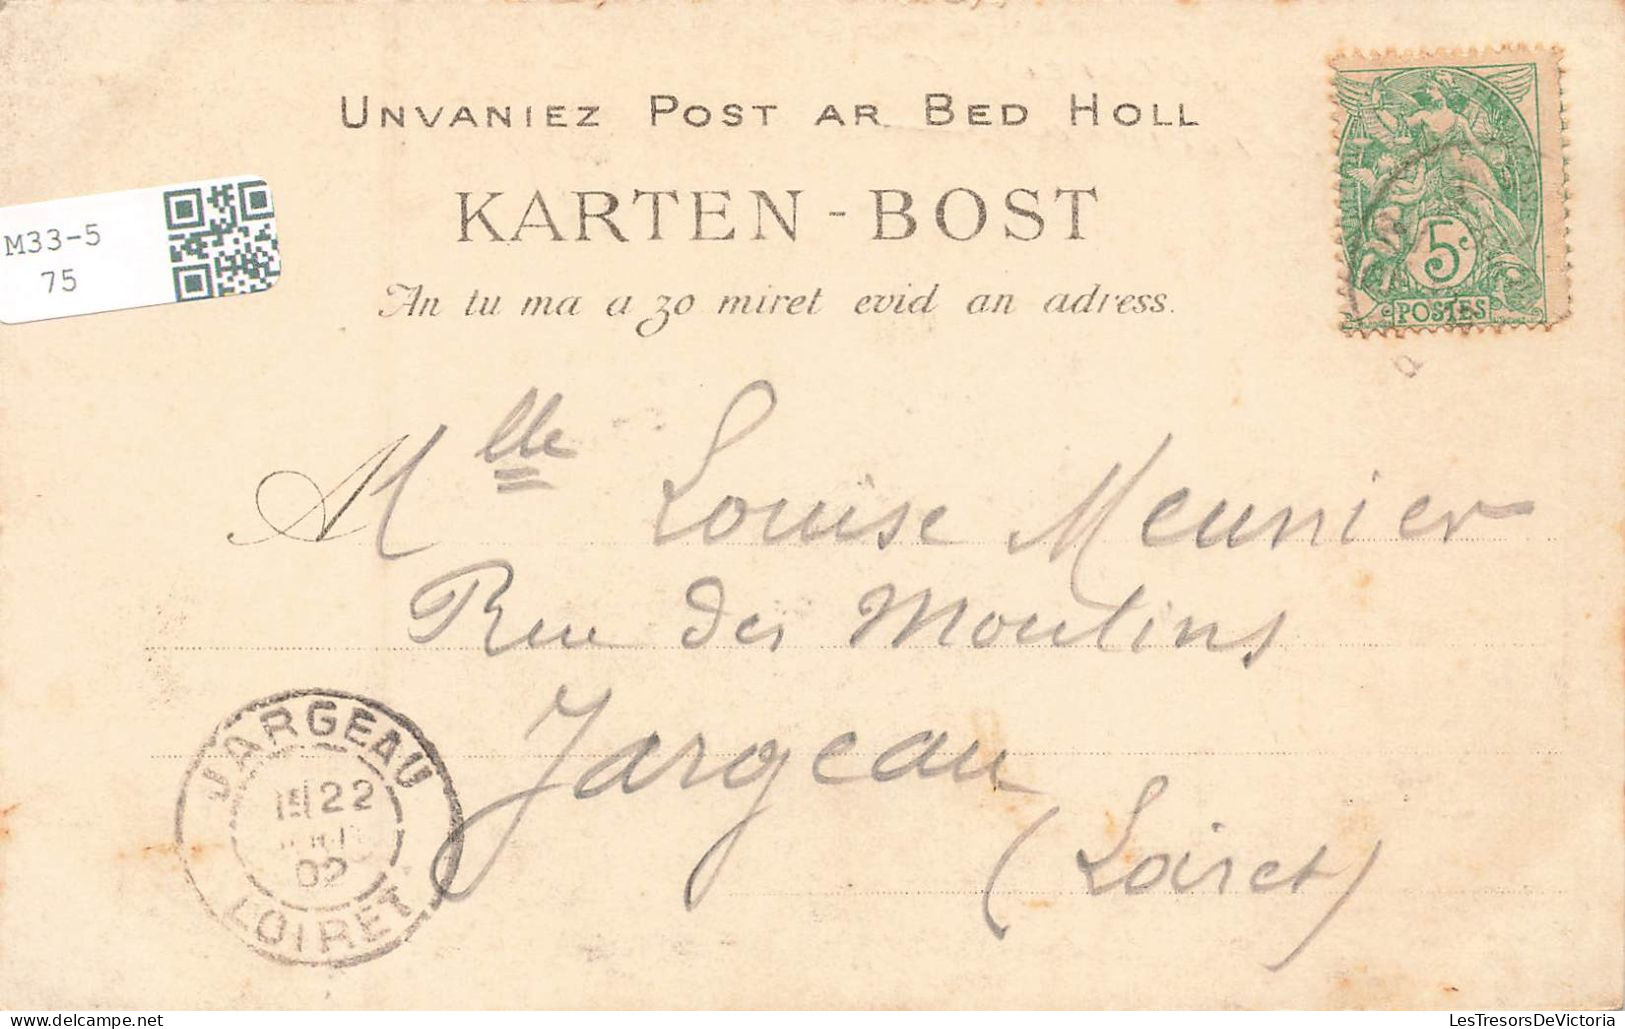 UNVANIEZ POST AR BED HOLL
KARTEN-BOST
An tu ma a zo miret evid an adress.
M33-5
75
5c
POSTES
Mlle Louise Meunier
Rue des Moulins
Jargeau
(Loiret)
JARGEAU
22
02
LOIRET
LesTresorsDeVictoria